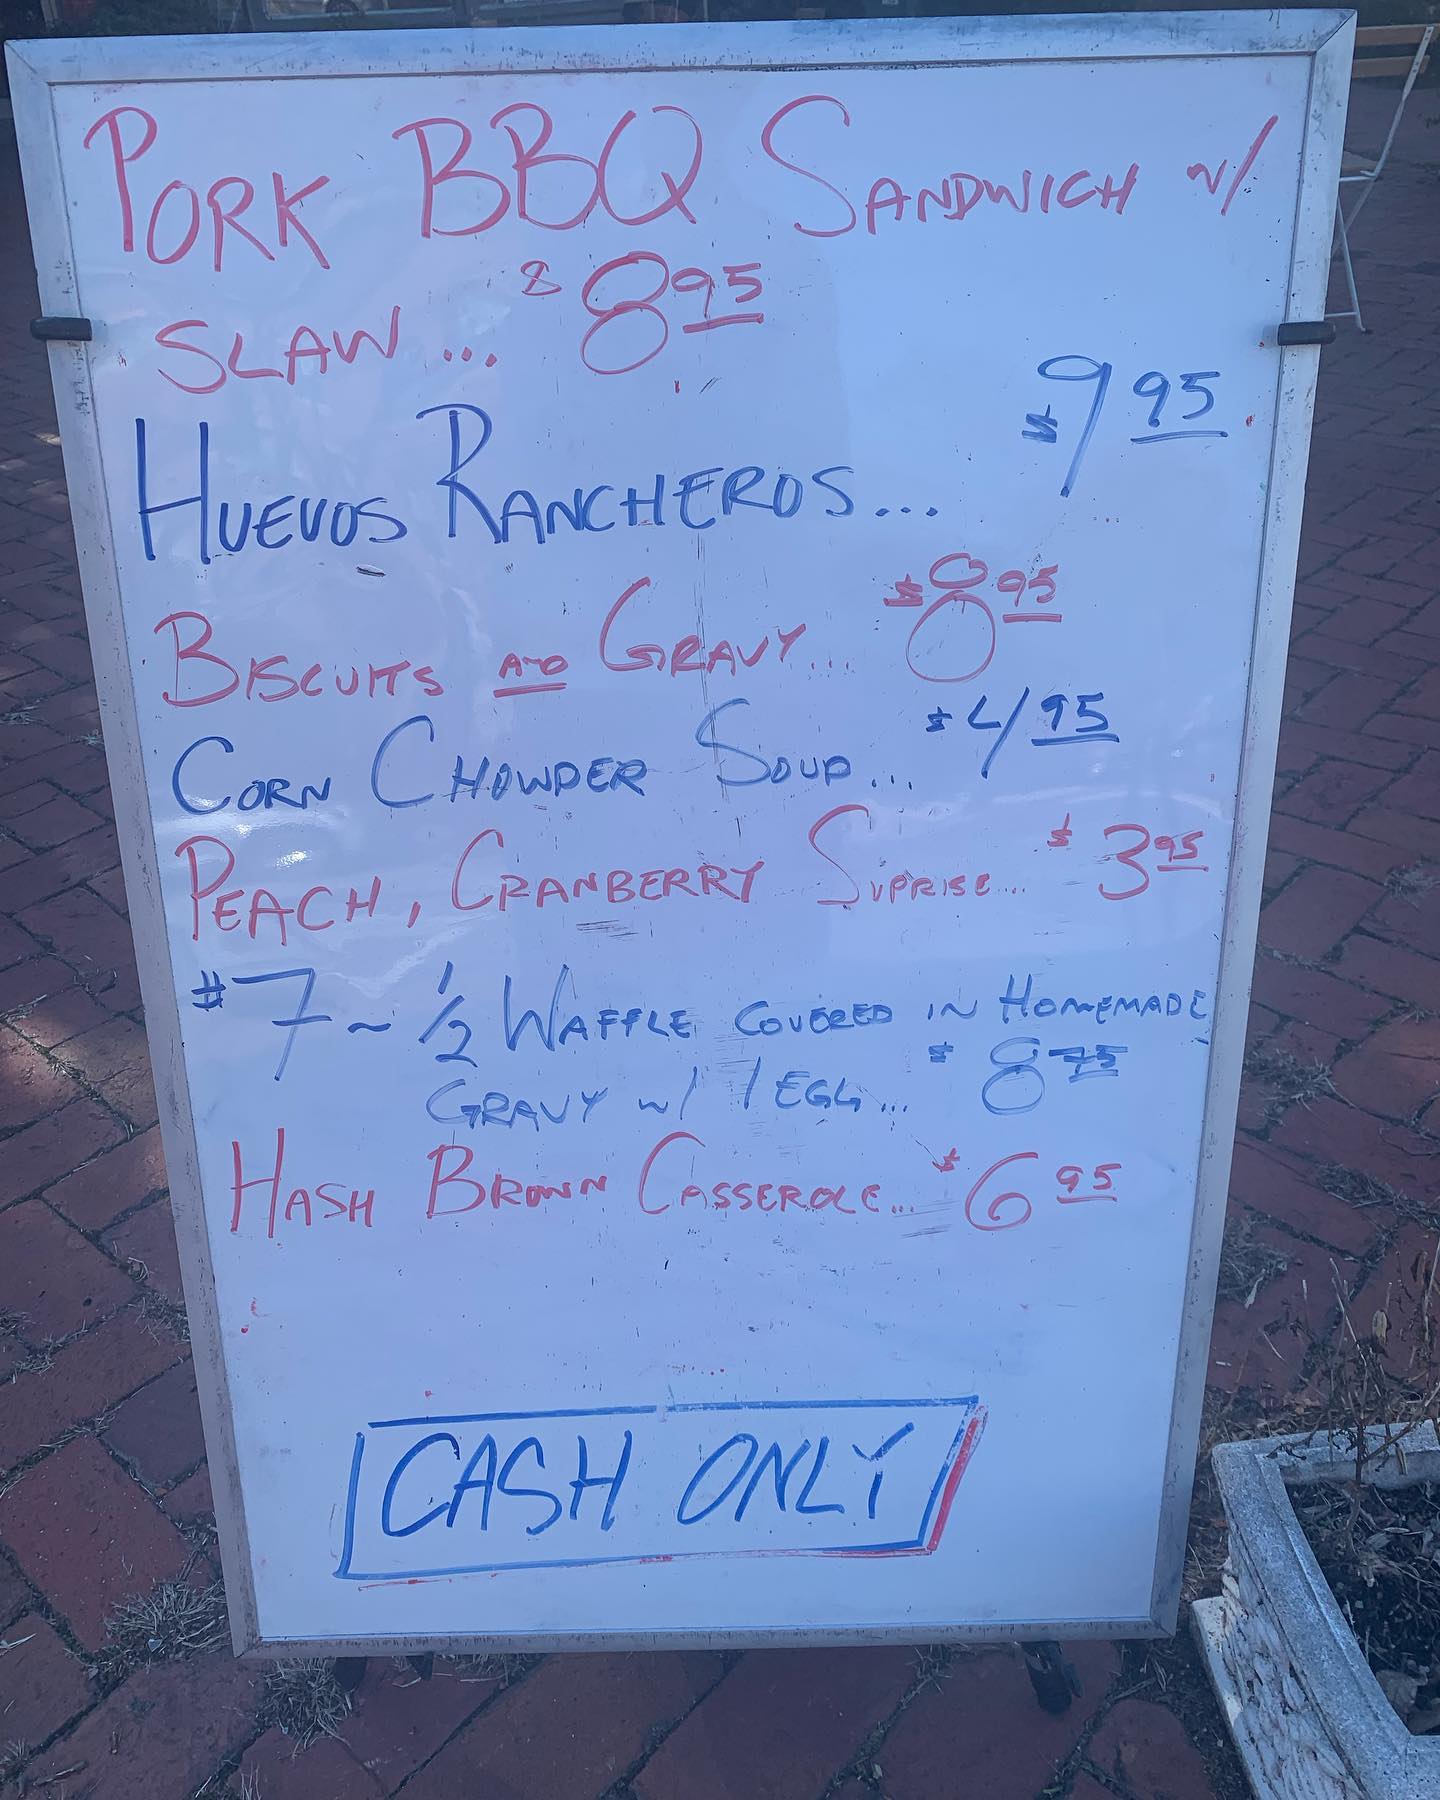 PORK BBQ SANDWICH w/
SLAW ... $8.95
HUEVOS RANCHEROS... $9.95
BISCUITS AND GRAVY... $8.95
CORN CHOWDER SOUP... $4.95
PEACH, CRANBERRY SUPRISE... $3.95
#7 ~ 1/2 WAFFLE COVERED IN HOMEMADE
GRAVY w/ 1 EGG... $8.75
HASH BROWN CASSEROLE... $6.95
CASH ONLY